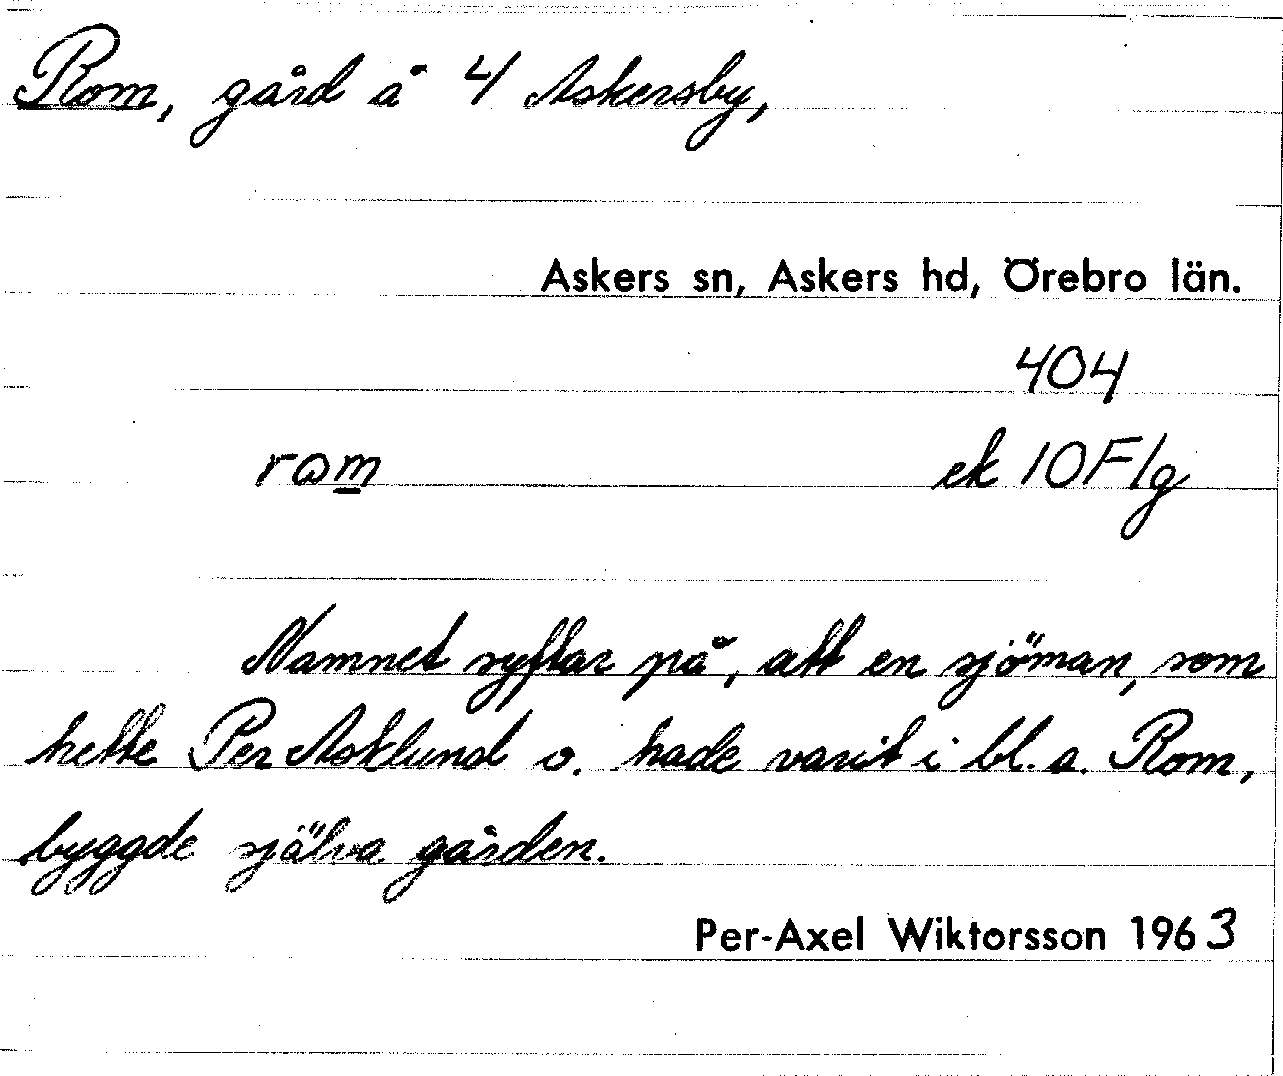 Rom, gård å 4 Askersby,
Askers sn, Askers hd, Örebro län.
404
ek 10F1g
Namnet syftar på, att en sjöman, som
hette Per Asklund o. hade varit i bl. a. Rom,
byggde själva gården.
Per-Axel Wiktorsson 1963